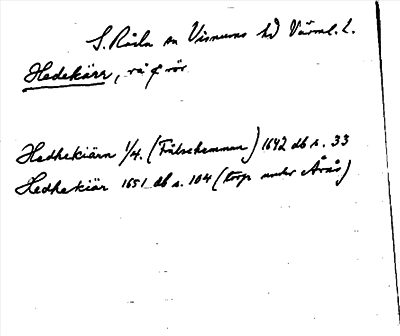 S. Råda sn Visnums hd Värml. l.
Hedekärr, rå o rör
Hedhekiärn 1/4. (Frälsehemman) 1642 db s. 33
Hedhekiär 1651 db s. 104 (torp under Årås)